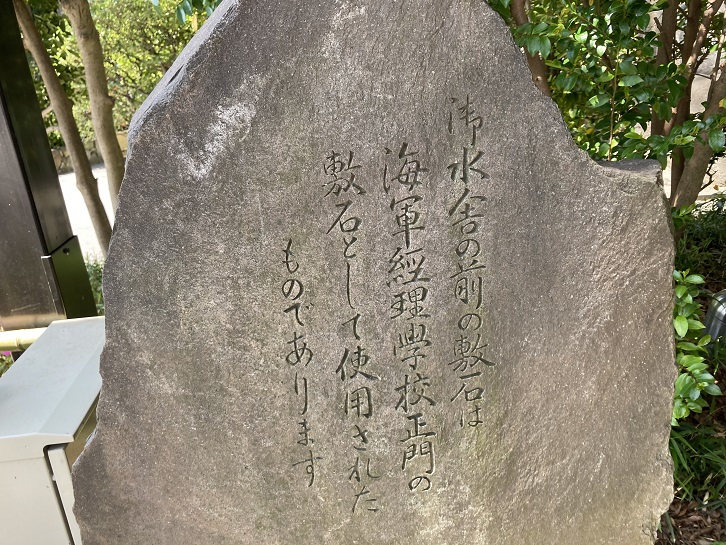 御水舎の前の敷石は
海軍經理學校正門の
敷石として使用された
ものであります